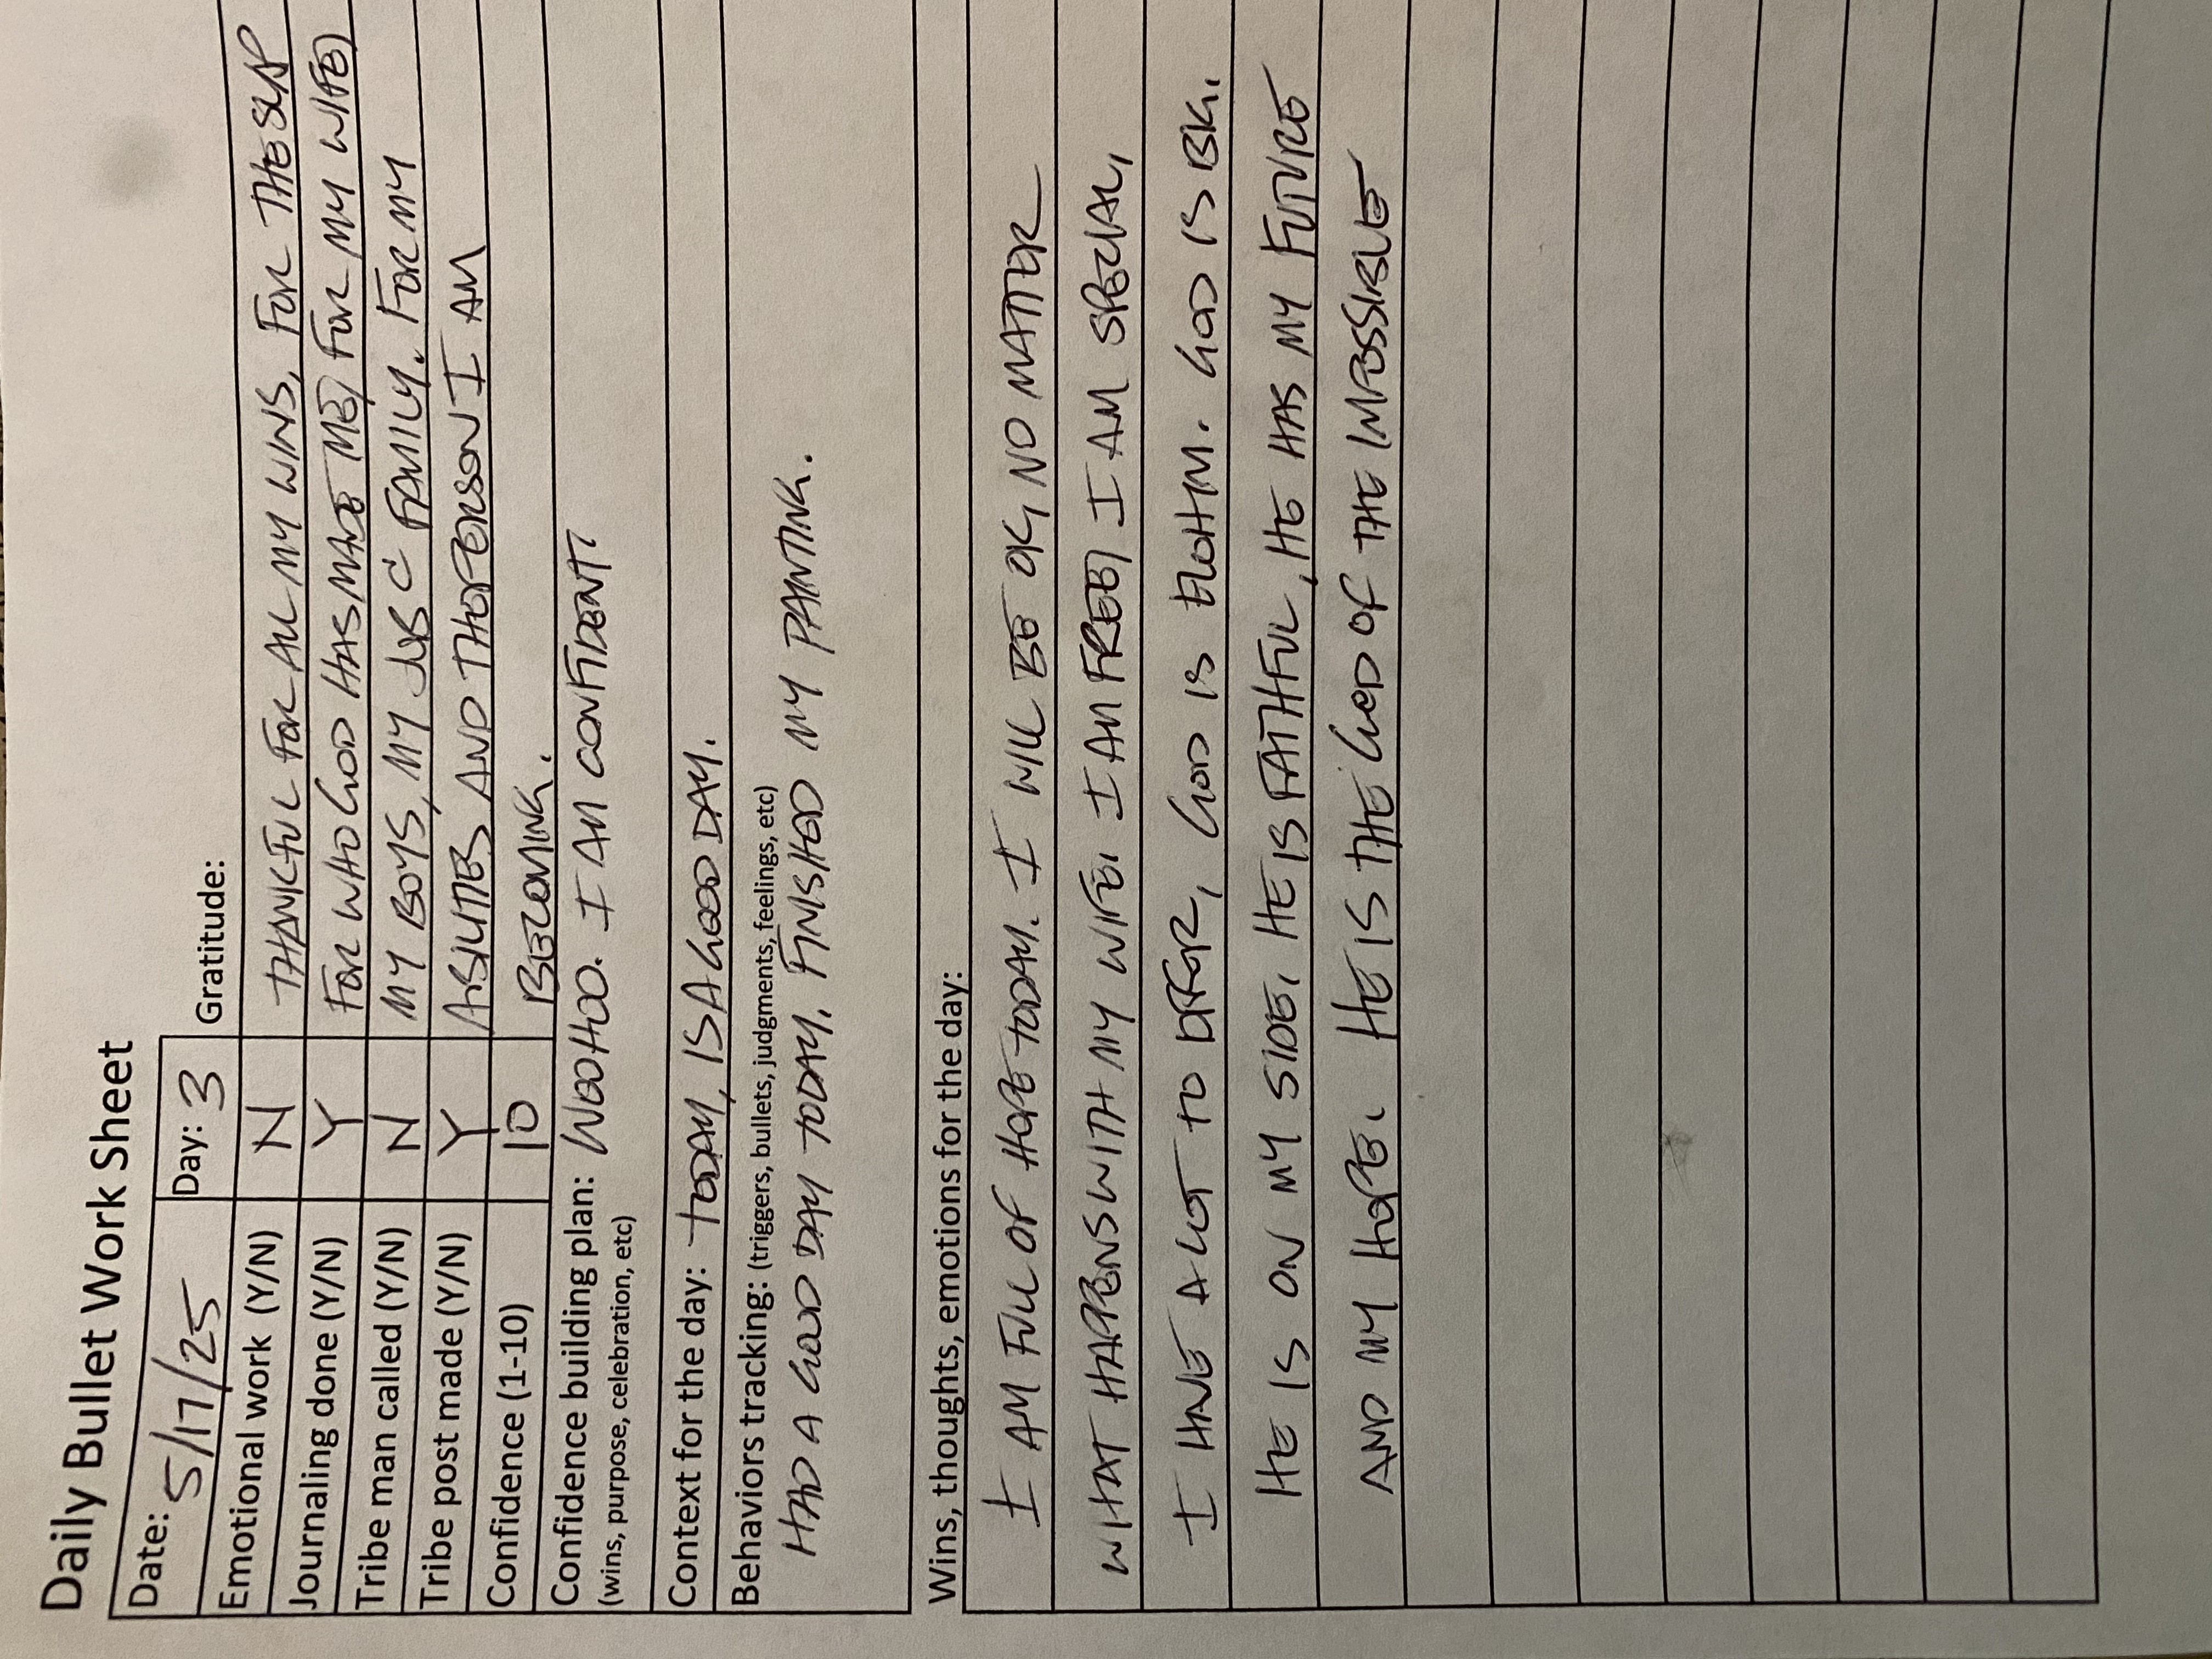 Daily Bullet Work Sheet
Date: 5/17/25 Day: 3 Gratitude:
Emotional work (Y/N) N THANKFUL FOR ALL MY WINS, FOR THE SUN
Journaling done (Y/N) Y FOR WHO GOD HAS MADE ME, FOR MY WIFE,
Tribe man called (Y/N) N MY BOYS, MY FAMILY. FOR MY
Tribe post made (Y/N) Y ABILITIES AND THE PERSON I AM
Confidence (1-10) 10 BECOMING.
Confidence building plan: WOOHOO. I AM CONFIDENT.
(wins, purpose, celebration, etc)
Context for the day: TODAY, IS A GOOD DAY.
Behaviors tracking: (triggers, bullets, judgments, feelings, etc)
HAD A GOOD DAY TODAY. FINISHED MY PAINTING.
Wins, thoughts, emotions for the day:
I AM FULL OF HOPE TODAY. I WILL BE OK, NO MATTER
WHAT HAPPENS WITH MY WIFE. I AM FREE, I AM SPECIAL,
I HAVE A LOT TO OFFER, GOD IS ELOHIM. GOD IS BIG.
HE IS ON MY SIDE. HE IS FAITHFUL, HE HAS MY FUTURE
AND MY HOPE. HE IS THE GOD OF THE IMPOSSIBLE